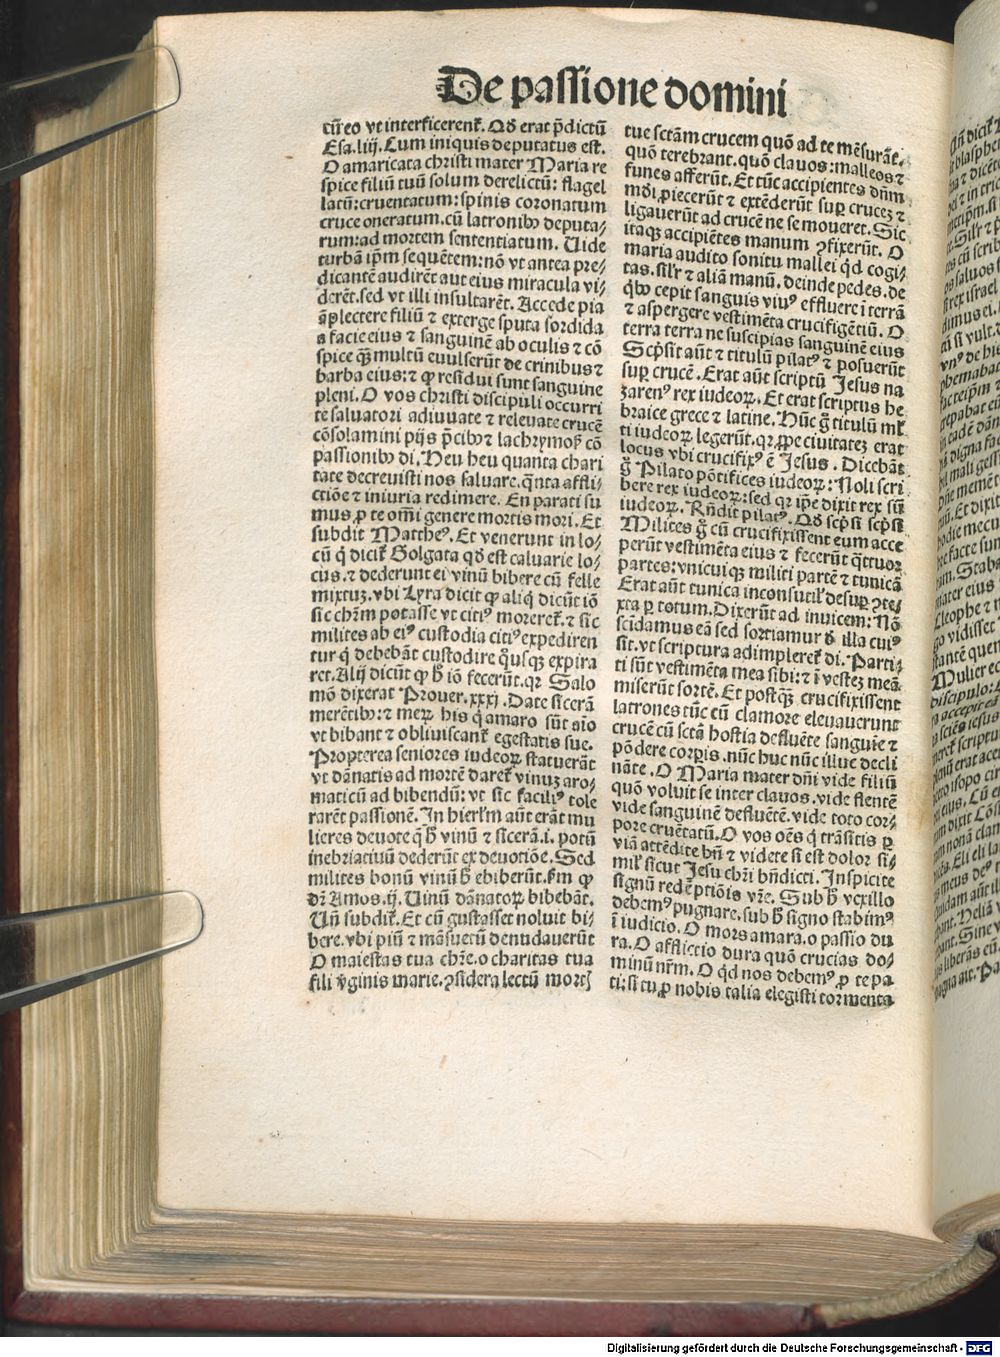 De passione domini
cū eo vt interficerent᷒. Qd̄ erat p̄dictū
Esa. liij. Cum iniquis deputatus est.
O amaricata christi mater Maria re
spice filiū tuū solum derelictū: flagel
latū: cruentatum: spinis coronatum
cruce oneratum. cū latronibꝰ deputa/
rum: ad mortem sententiatum. Uide
turbā ip̄m sequētem: nō vt antea pre/
dicantē audirēt aut eius miracula vi/
derēt. sed vt illi insultarēt. Accede pia
āplectere filiū ⁊ exterge sputa sordida
a facie eius ⁊ sanguinē ab oculis ⁊ cō
spice qꝫ multū euulserūt de crinibus ⁊
barba eius: ⁊ ꝙ residui sunt sanguine
pleni. O vos christi discipuli occurri
te saluatori adiuuate ⁊ releuate crucē
cōsolamini pijs p̄cibꝰ ⁊ lachrymosꝭ cō
passionibꝰ di. Heu heu quanta chari
tate decreuisti nos saluare. q̄nta affli/
ctiōe ⁊ iniuria redimere. En parati su
mus ꝓ te om̄i genere mortis mori. Et
subdit Mattheꝰ. Et venerunt in lo/
cū q̄ dicit᷒ Golgata qd̄ est caluarie lo/
cus. ⁊ dederunt ei vinū bibere cū felle
mixtuꝫ. vbi Lyra dicit ꝙ aliq̄ dicūt iō
sic chr̄m potasse vt citiꝰ moreret᷒. ⁊ sic
milites ab eiꝰ custodia citiꝰ expediren
tur q̄ debebāt custodire q̄usqꝫ expira
ret. Alij dicūt ꝙ h̄ iō fecerūt. qꝛ Salo
mō dixerat Prouer. xxxj. Date sicerā
merētibꝰ: ⁊ meꝝ his q̄ amaro sūt aīo
vt bibant ⁊ obliuiscant᷒ egestatis sue.
Propterea seniores iudeoꝝ statuerāt
vt dānatis ad mortē daret᷒ vinuꝫ aro/
maticū ad bibendū: vt sic faciliꝰ tole
rarēt passionē. In hierl̄m aūt erāt mu
lieres deuote q̄ h̄ vinū ⁊ sicerā .i. potū
inebriatiuū dederūt ex deuotiōe. Sed
milites bonū vinū h̄ ebiberūt. ẜm ꝙ
dr̄ Amos .ij. Uinū dānatoꝝ bibebāt.
Un̄ subdit᷒. Et cū gustasset noluit bi/
bere. vbi piū ⁊ māsuetū denudauerūt
O maiestas tua chr̄e. o charitas tua
fili v̄ginis marie. ꝯsidera lectū mortꝭ
tue sctām crucem quō ad te mēsurāt᷒.
quō terebrant. quō clauos: malleos ⁊
funes afferūt. Et tūc accipientes dn̄m
mūdi ꝓiecerūt ⁊ extēderūt suꝑ cruceꝫ ⁊
ligauerūt ad crucē ne se moueret. Sic
itaqꝫ accipiētes manum ꝯfixerūt. O
maria audito sonitu mallei qd̄ cogi/
tas. sil̄r ⁊ aliā manū. deinde pedes. de
qͥbꝰ cepit sanguis viuꝰ effluere ī terrā
⁊ aspergere vestimēta crucifigētiū. O
terra terra ne suscipias sanguinē eius
Scp̄sit aūt ⁊ titulū pilatꝰ ⁊ posuerūt
suꝑ crucē. Erat aūt scriptū Jesus na
zarenꝰ rex iudeoꝝ. Et erat scriptus he
braice grece ⁊ latine. Hūc g̊ titulū ml̄
ti iudeoꝝ legerūt. qꝛ ꝓpe ciuitateꝫ erat
locus vbi crucifixꝰ ē Jesus. Dicebāt
g̊ Pilato pōtifices iudeoꝝ: Noli scri
bere rex iudeoꝝ: sed qꝛ ip̄e dixit rex sū
iudeoꝝ. Rn̄dit pilatꝰ. Qd̄ scp̄si scp̄si
Milites g̊ cū crucifixissent eum acce
perūt vestimēta eius ⁊ fecerūt q̄ttuor
partes: vnicuiqꝫ militi partē ⁊ tunicā
Erat aūt tunica inconsutil᷒ desuꝑ ꝯte/
xta ꝑ totum. Dixerūt ad inuicem: Nō
scīdamus eā sed sortiamur d̄ illa cuiꝰ
sit. vt scriptura adimpleret᷒ di. Parti/
ti sūt vestimēta mea sibi: ⁊ ī vesteꝫ meā
miserūt sortē. Et postqꝫ crucifixissent
latrones tūc eū clamore eleuauerunt
crucē cū sctā hostia defluēte sanguīe ⁊
pōdere corꝑis. nūc huc nūc illuc decli
nāte. O Maria mater dn̄i vide filiū
quō voluit se inter clauos. vide flentē
vide sanguinē defluētē. vide toto cor/
pore cruētatū. O vos oēs q̄ trāsitis ꝑ
viā attēdite bn̄ ⁊ videte si est dolor si/
mil᷒ sicut Jesu chr̄i bn̄dicti. Inspicite
signū redēptiōis vr̄e. Sub h̄ vexillo
debemꝰ pugnare. sub h̄ signo stabimꝰ
ī iudicio. O mors amara. o passio du
ra. O afflictio dura quō crucias do/
minū nr̄m. O qd̄ nos debemꝰ ꝓ te pa
ti: si tu ꝓ nobis talia elegisti tormenta
Digitalisierung gefördert durch die Deutsche Forschungsgemeinschaft - DFG